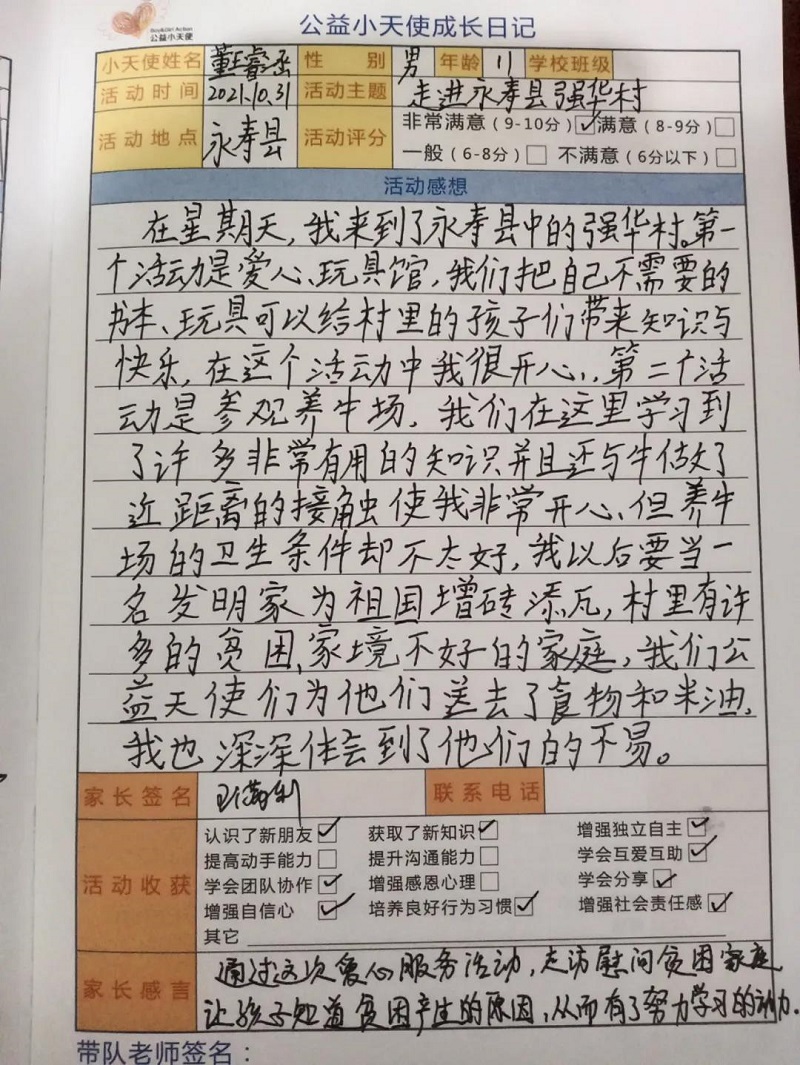 Boy&Girl Action
公益小天使
公益小天使成长日记
小天使姓名 董王睿丞 性别 男 年龄 11 学校班级
活动时间 2021.10.31 活动主题 走进永寿县强华村
活动地点 永寿县 活动评分 非常满意(9-10分)☑满意(8-9分)□
一般(6-8分)□ 不满意(6分以下)□
活动感想
在星期天,我来到了永寿县中的强华村。第一
个活动是爱心、玩具馆,我们把自己不需要的
书本、玩具可以给村里的孩子们带来知识与
快乐,在这个活动中我很开心,.第二个活
动是参观养牛场,我们在这里学习到
了许多非常有用的知识并且还与牛做了
近距离的接触使我非常开心、但养牛
场的卫生条件却不太好,我以后要当一
名发明家为祖国增砖添瓦,村里有许
多的贫困、家境不好的家庭,我们公
益天使们为他们送去了食物和米油,
我也深深体会到了他们的不易。
家长签名 联系电话
活动收获
认识了新朋友☑ 获取了新知识☑ 增强独立自主☑
提高动手能力□ 提升沟通能力□ 学会互爱互助☑
学会团队协作☑ 增强感恩心理□ 学会分享☑
增强自信心☑ 培养良好行为习惯☑ 增强社会责任感☑
其它
家长感言
通过这次爱心服务活动,走访慰问贫困家庭
让孩子知道贫困产生的原因,从而有了努力学习的动力.
带队老师签名: